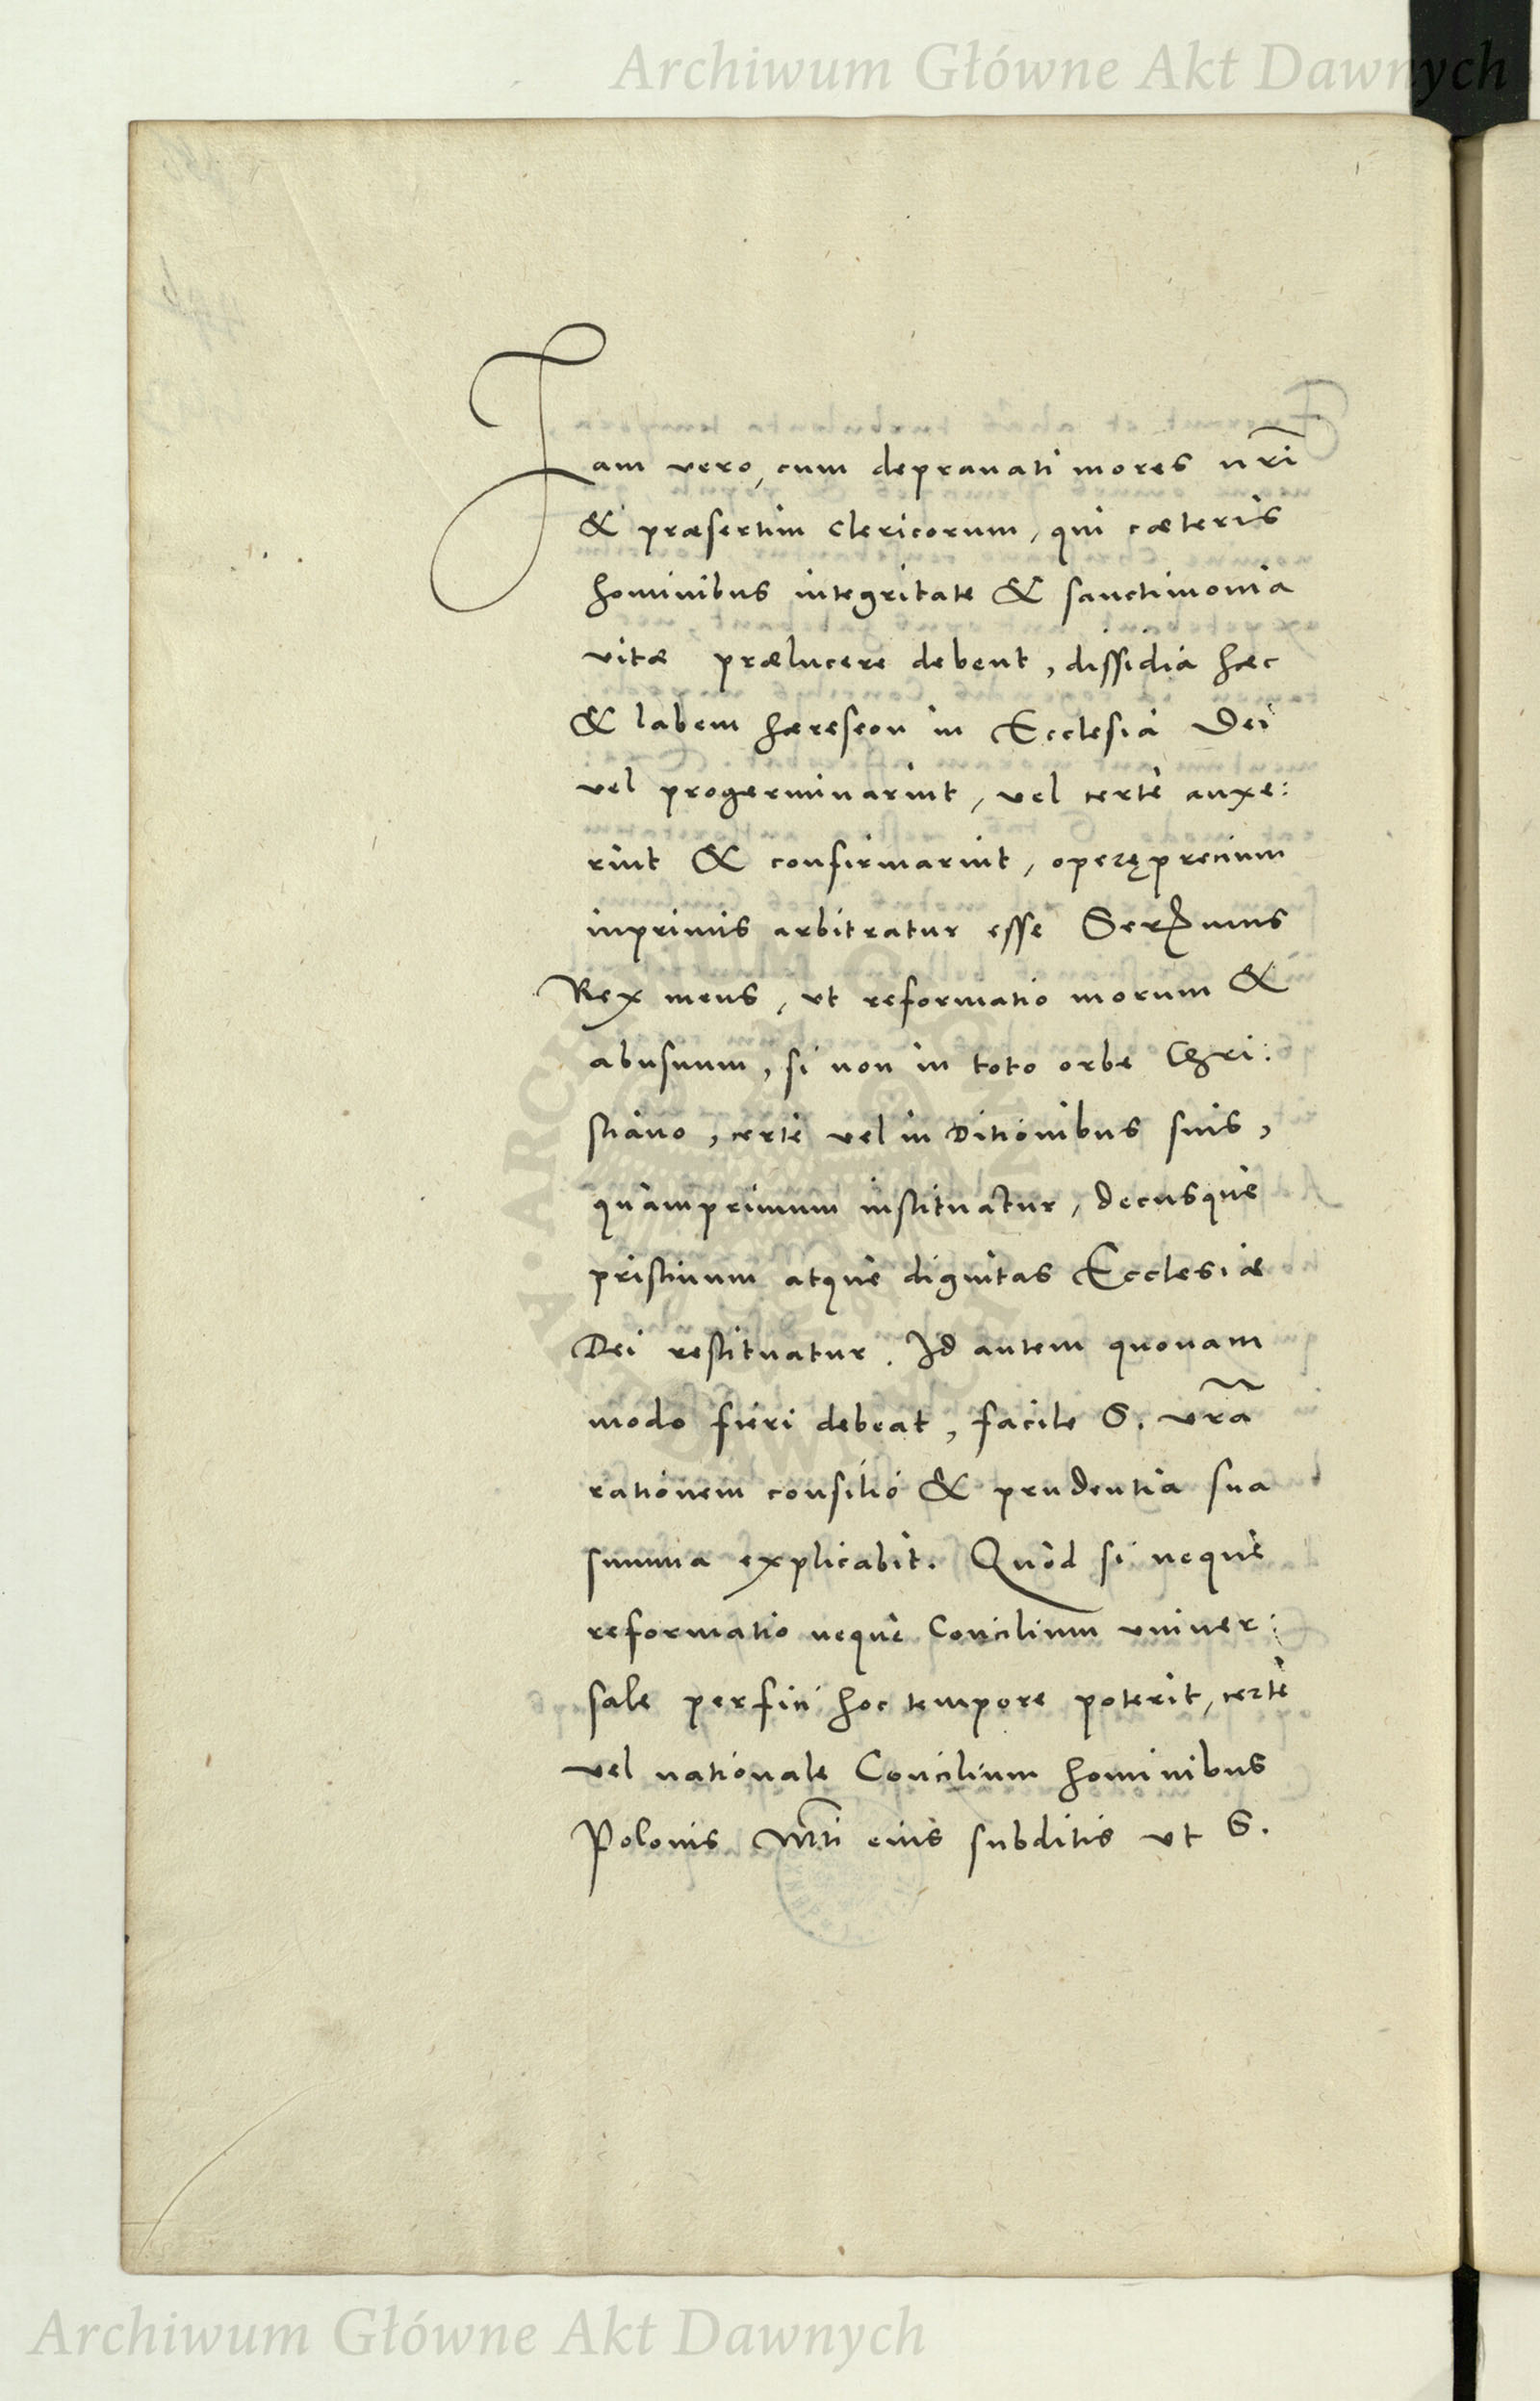 Archiwum Główne Akt Dawnych
Jam vero, cum deprauati mores nr̃i
& præsertim Clericorum, qui cæteris
hominibus integritate & sanctimonia
vitæ prælucere debent, dissidia hæc
& labem hæreseon in Ecclesia Dei
vel progerminarint, vel certè auxe:
rint & confirmarint, operęprecium
inprimis arbitratur esse Serꝰmus
Rex meus, vt reformatio morum &
abusuum, si non in toto orbe Chri:
stiano, certè vel in Ditionibus suis,
quàmprimum instituatur, decusque
pristinum atque dignitas Ecclesiæ
Dei restituatur. Id autem quonam
modo fieri debeat, facile S. vr̃a
rationem consilio & prudentia sua
summa explicabit. Quòd si neque
reformatio neque Concilium vniuer:
sale perfici hoc tempore poterit, certè
vel nationale Concilium hominibus
Polonis Mt̃i eius subditis vt S.
ARCHIWUM GŁÓWNE AKT DAWNYCH
Archiwum Główne Akt Dawnych